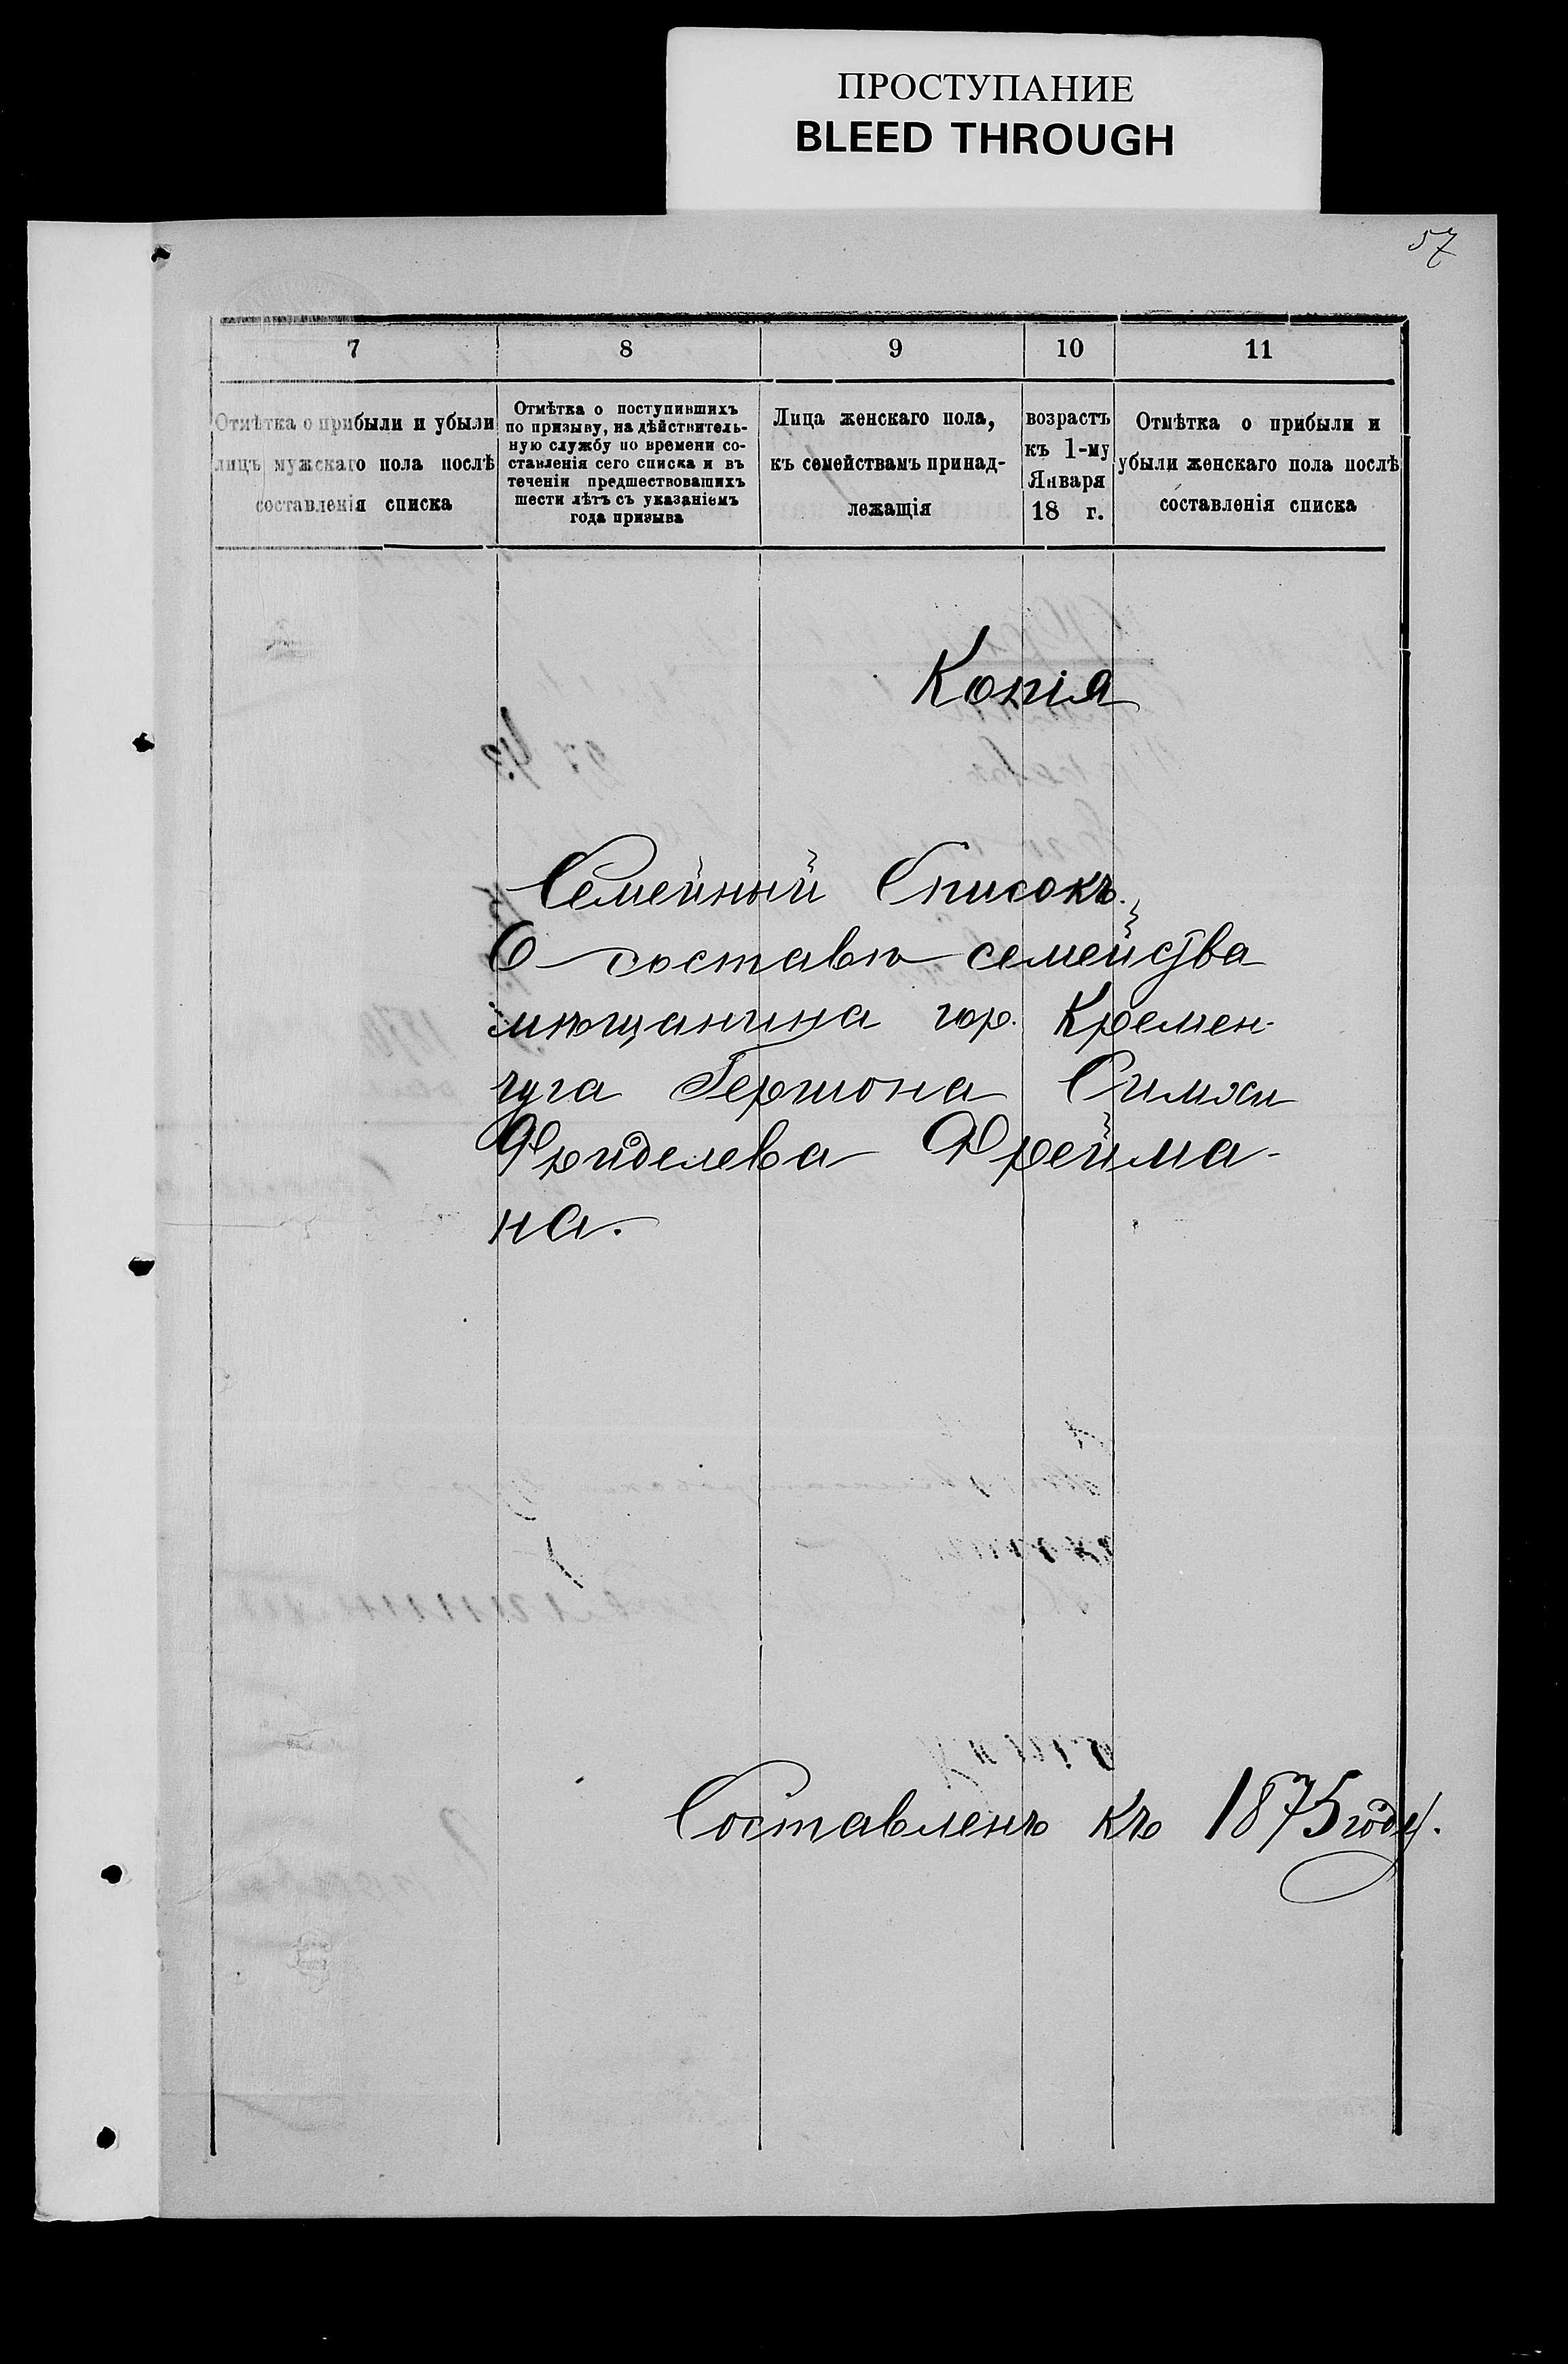 ПРОСТУПАНИЕ
BLEED THROUGH
57
7 8 9 10 11
Отмѣтка о прибыли и убыли
лицъ мужскаго пола послѣ
составленія списка
Отмѣтка о поступившихъ
по призыву, на дѣйствитель-
ную службу по времени со-
ставленія сего списка и въ
теченіи предшествовавшихъ
шести лѣтъ съ указаніемъ
года призыва
Лица женскаго пола,
къ семействамъ принад-
лежащія
возрастъ
къ 1-му
Января
18 г.
Отмѣтка о прибыли и
убыли женскаго пола послѣ
составленія списка
Копія
Семейный Списокъ.
О составѣ семейства
мѣщанина гор. Кремен-
чуга Гершона Симхи
Фрйделева Фрейма-
на.
Составленъ къ 1875 году.